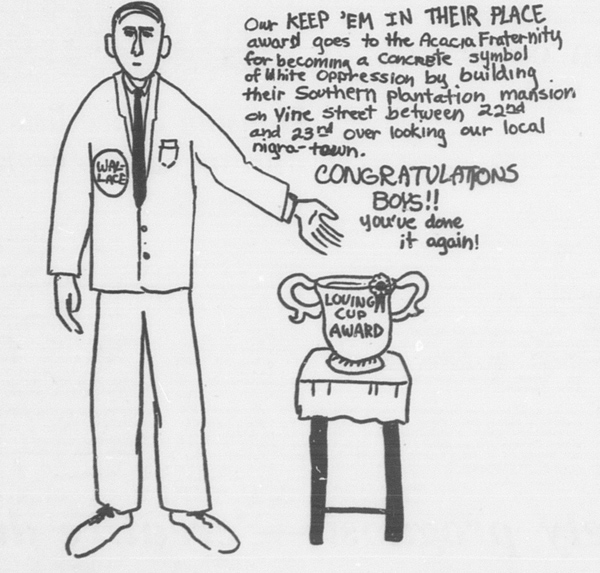 Our KEEP 'EM IN THEIR PLACE
award goes to the Acacia Fraternity
for becoming a concrete symbol
of White Oppression by building
their Southern plantation mansion
on Vine Street between 22nd
and 23rd over looking our local
nigra-town.
CONGRATULATIONS
BOYS!!
you've done
it again!
WAL-
LACE
LOVING
CUP
AWARD